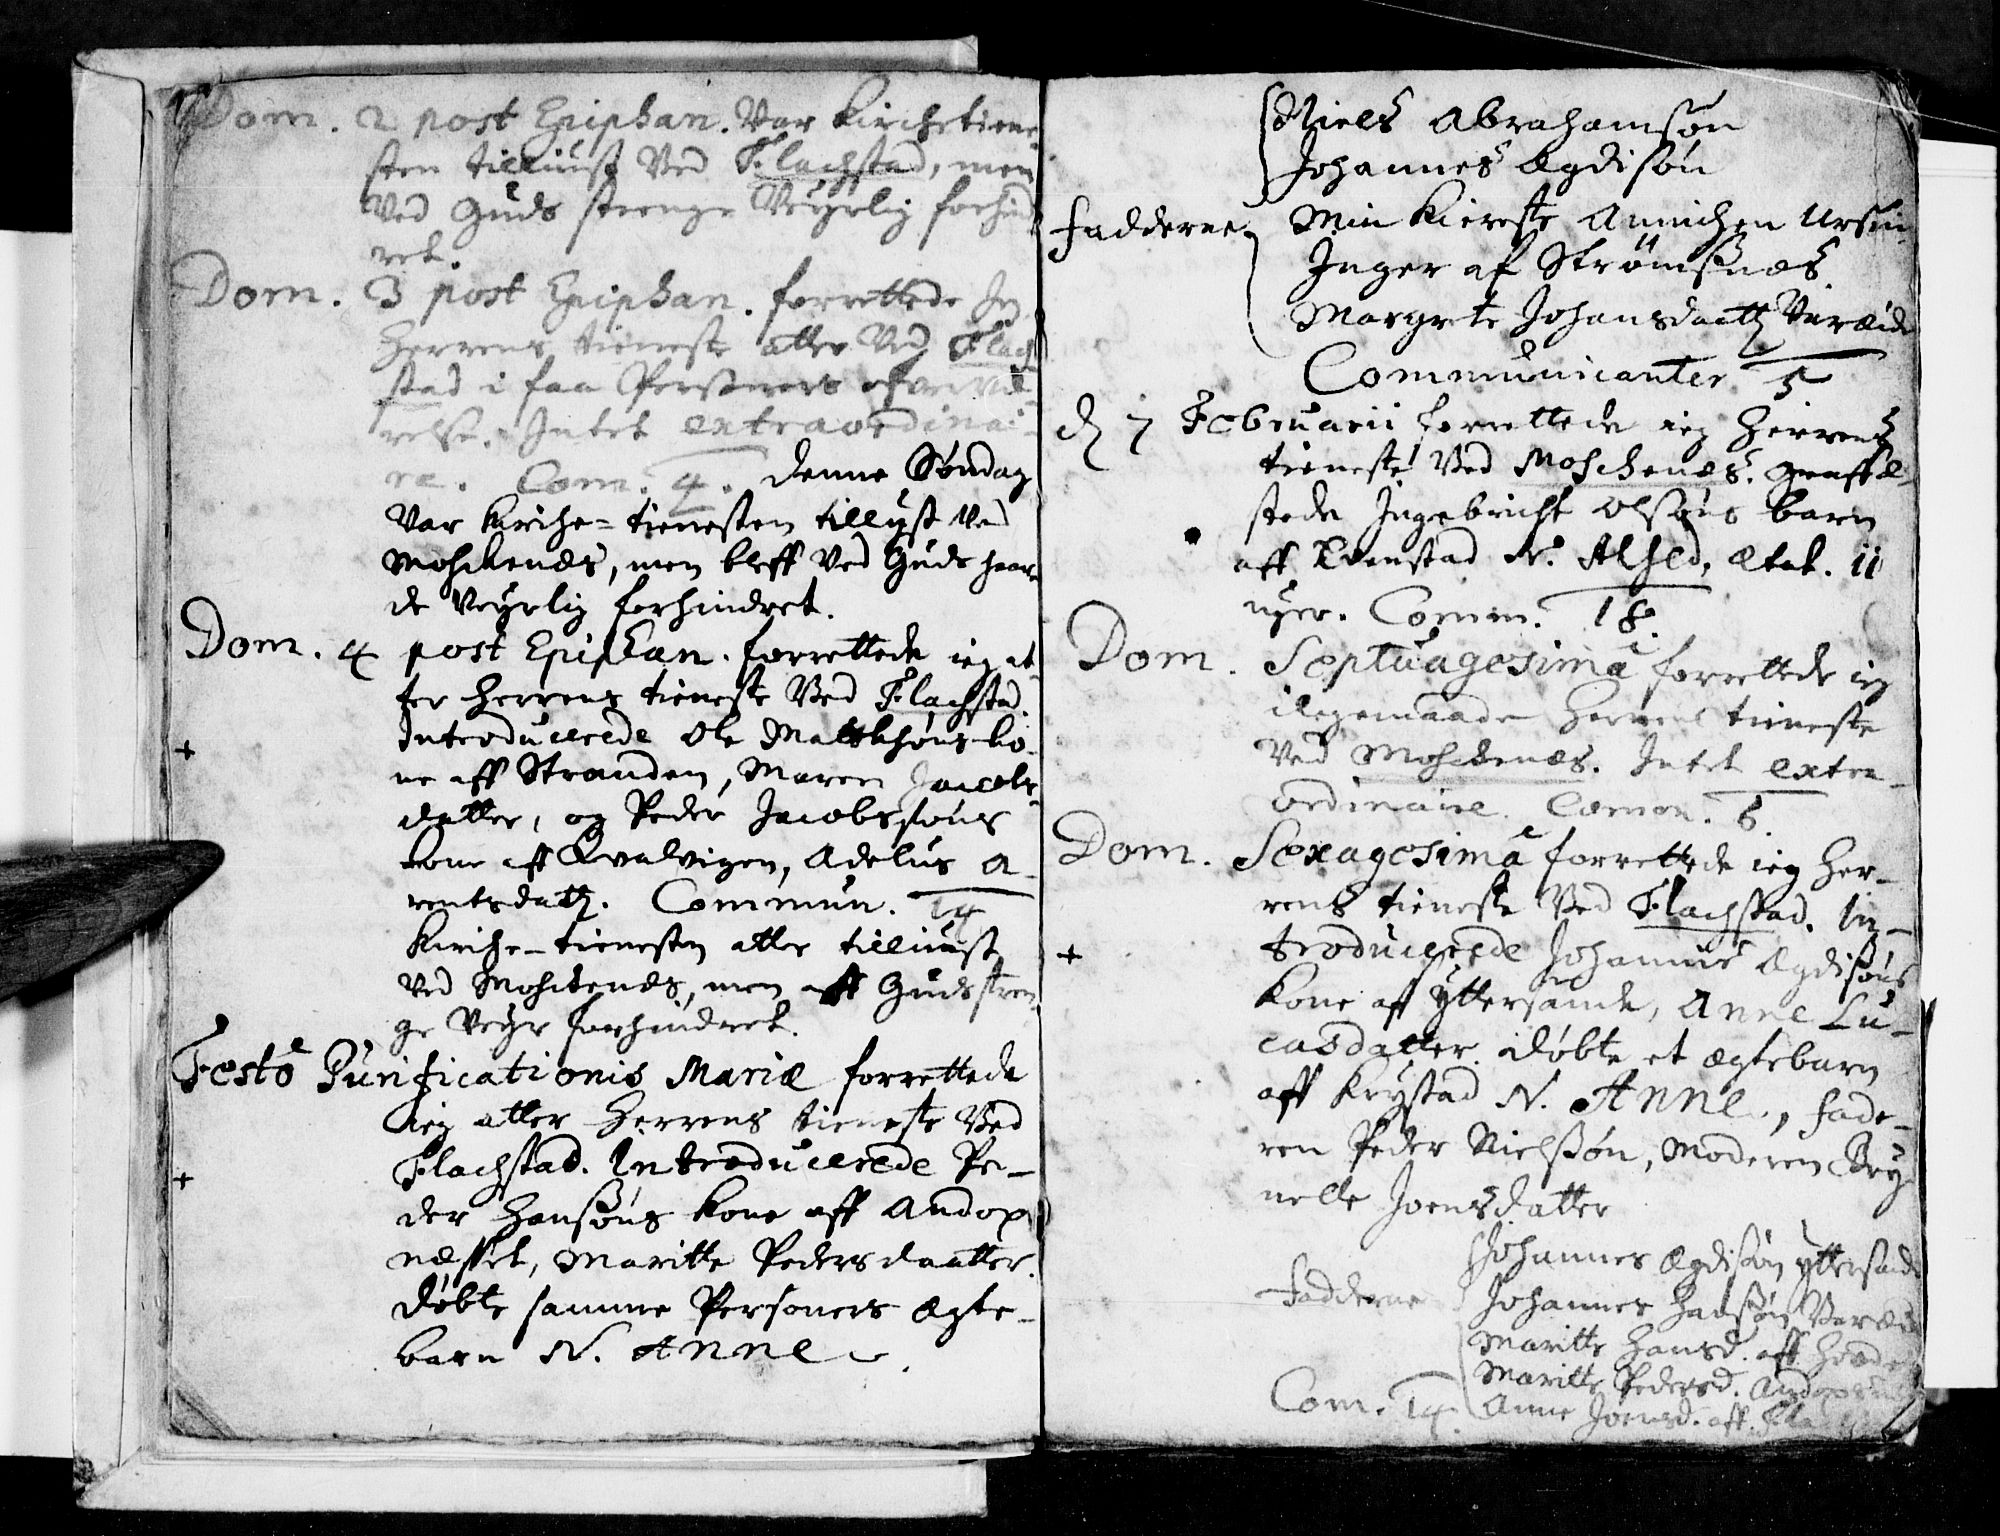 Dom. 2 post Epiphan. Var kirchetiene
sten tilliust Ved Flachstad, men
Ved Guds strenge Veyrlig forhind
ret.
Dom. 3 post Epiphan. forrettede Jeg
Herrens tieneste atter Ved Flach
stad i faa Personers ofvervæ
relse. Intet extraordinai
re. Com. 4. denne Søndag
Var kirche-tienesten tillyst Ved
Moschenæs, men bleff Ved Guds haar
de Veyrlig forhindret.
Dom. 4 post Epiphan. forrettede ieg at
ter Herrens tieneste Ved Flachstad.
Introducerede Ole Matthsøns ko-
+
ne aff Stranden, Maren Jacobs-
datter, og Peder Jacobssøns
kone aff Kvalvigen, Adelus A-
rentsdatt. Commun. 14
Kirche-tienesten atter tilliust
Ved Moschenæs, men aff Guds stren
ge Veyr forhindret.
Festo Purificationis Mariæ forrettede
ieg atter Herrens tieneste Ved
Flachstad. Introducerede Pe-
+
der Hansøns kone aff Andop
næsset, Maritte Pedersdaatter.
døbte samme Personers Ægte-
barn N. Anne.
Niels Abrahamsøn
Johannes Ægdisøn
Fadderne Min Kiereste Annichen Ursin
Inger af Strømsnæs.
Margrete Johansdaatt Vareide
Communicanter 5
d 7 Februarii forrettede ieg Herrens
tieneste Ved Moschenæs. graffæ-
stede Ingebricht Olsøns barn
aff Evenstad N. Alhed, Ætat. 11
uger. Comm. 18.
Dom. Septuagesima forrettede ieg
iligemaade Herrens tieneste
Ved Moschenæs. Intet extra-
ordinaire. Common. 6.
Dom. Sexagesima forrettede ieg Her-
rens tieneste Ved Flachstad. In-
+
troducerede Johannis Ægdisøns
kone af Yttersande, Anne Lu-
casdatter. døbte et ægtebarn
aff Krystad N. Anne, fade-
ren Peder Nielsøn, Moderen Bry
nelle Joensdatter
Johannes Ægdisøn Yttersand
Fadderne Johannes Hansøn Vareid
Maritte Hansd. aff
Maritte Pedersd.
Com. 14. Anne Joensd. aff